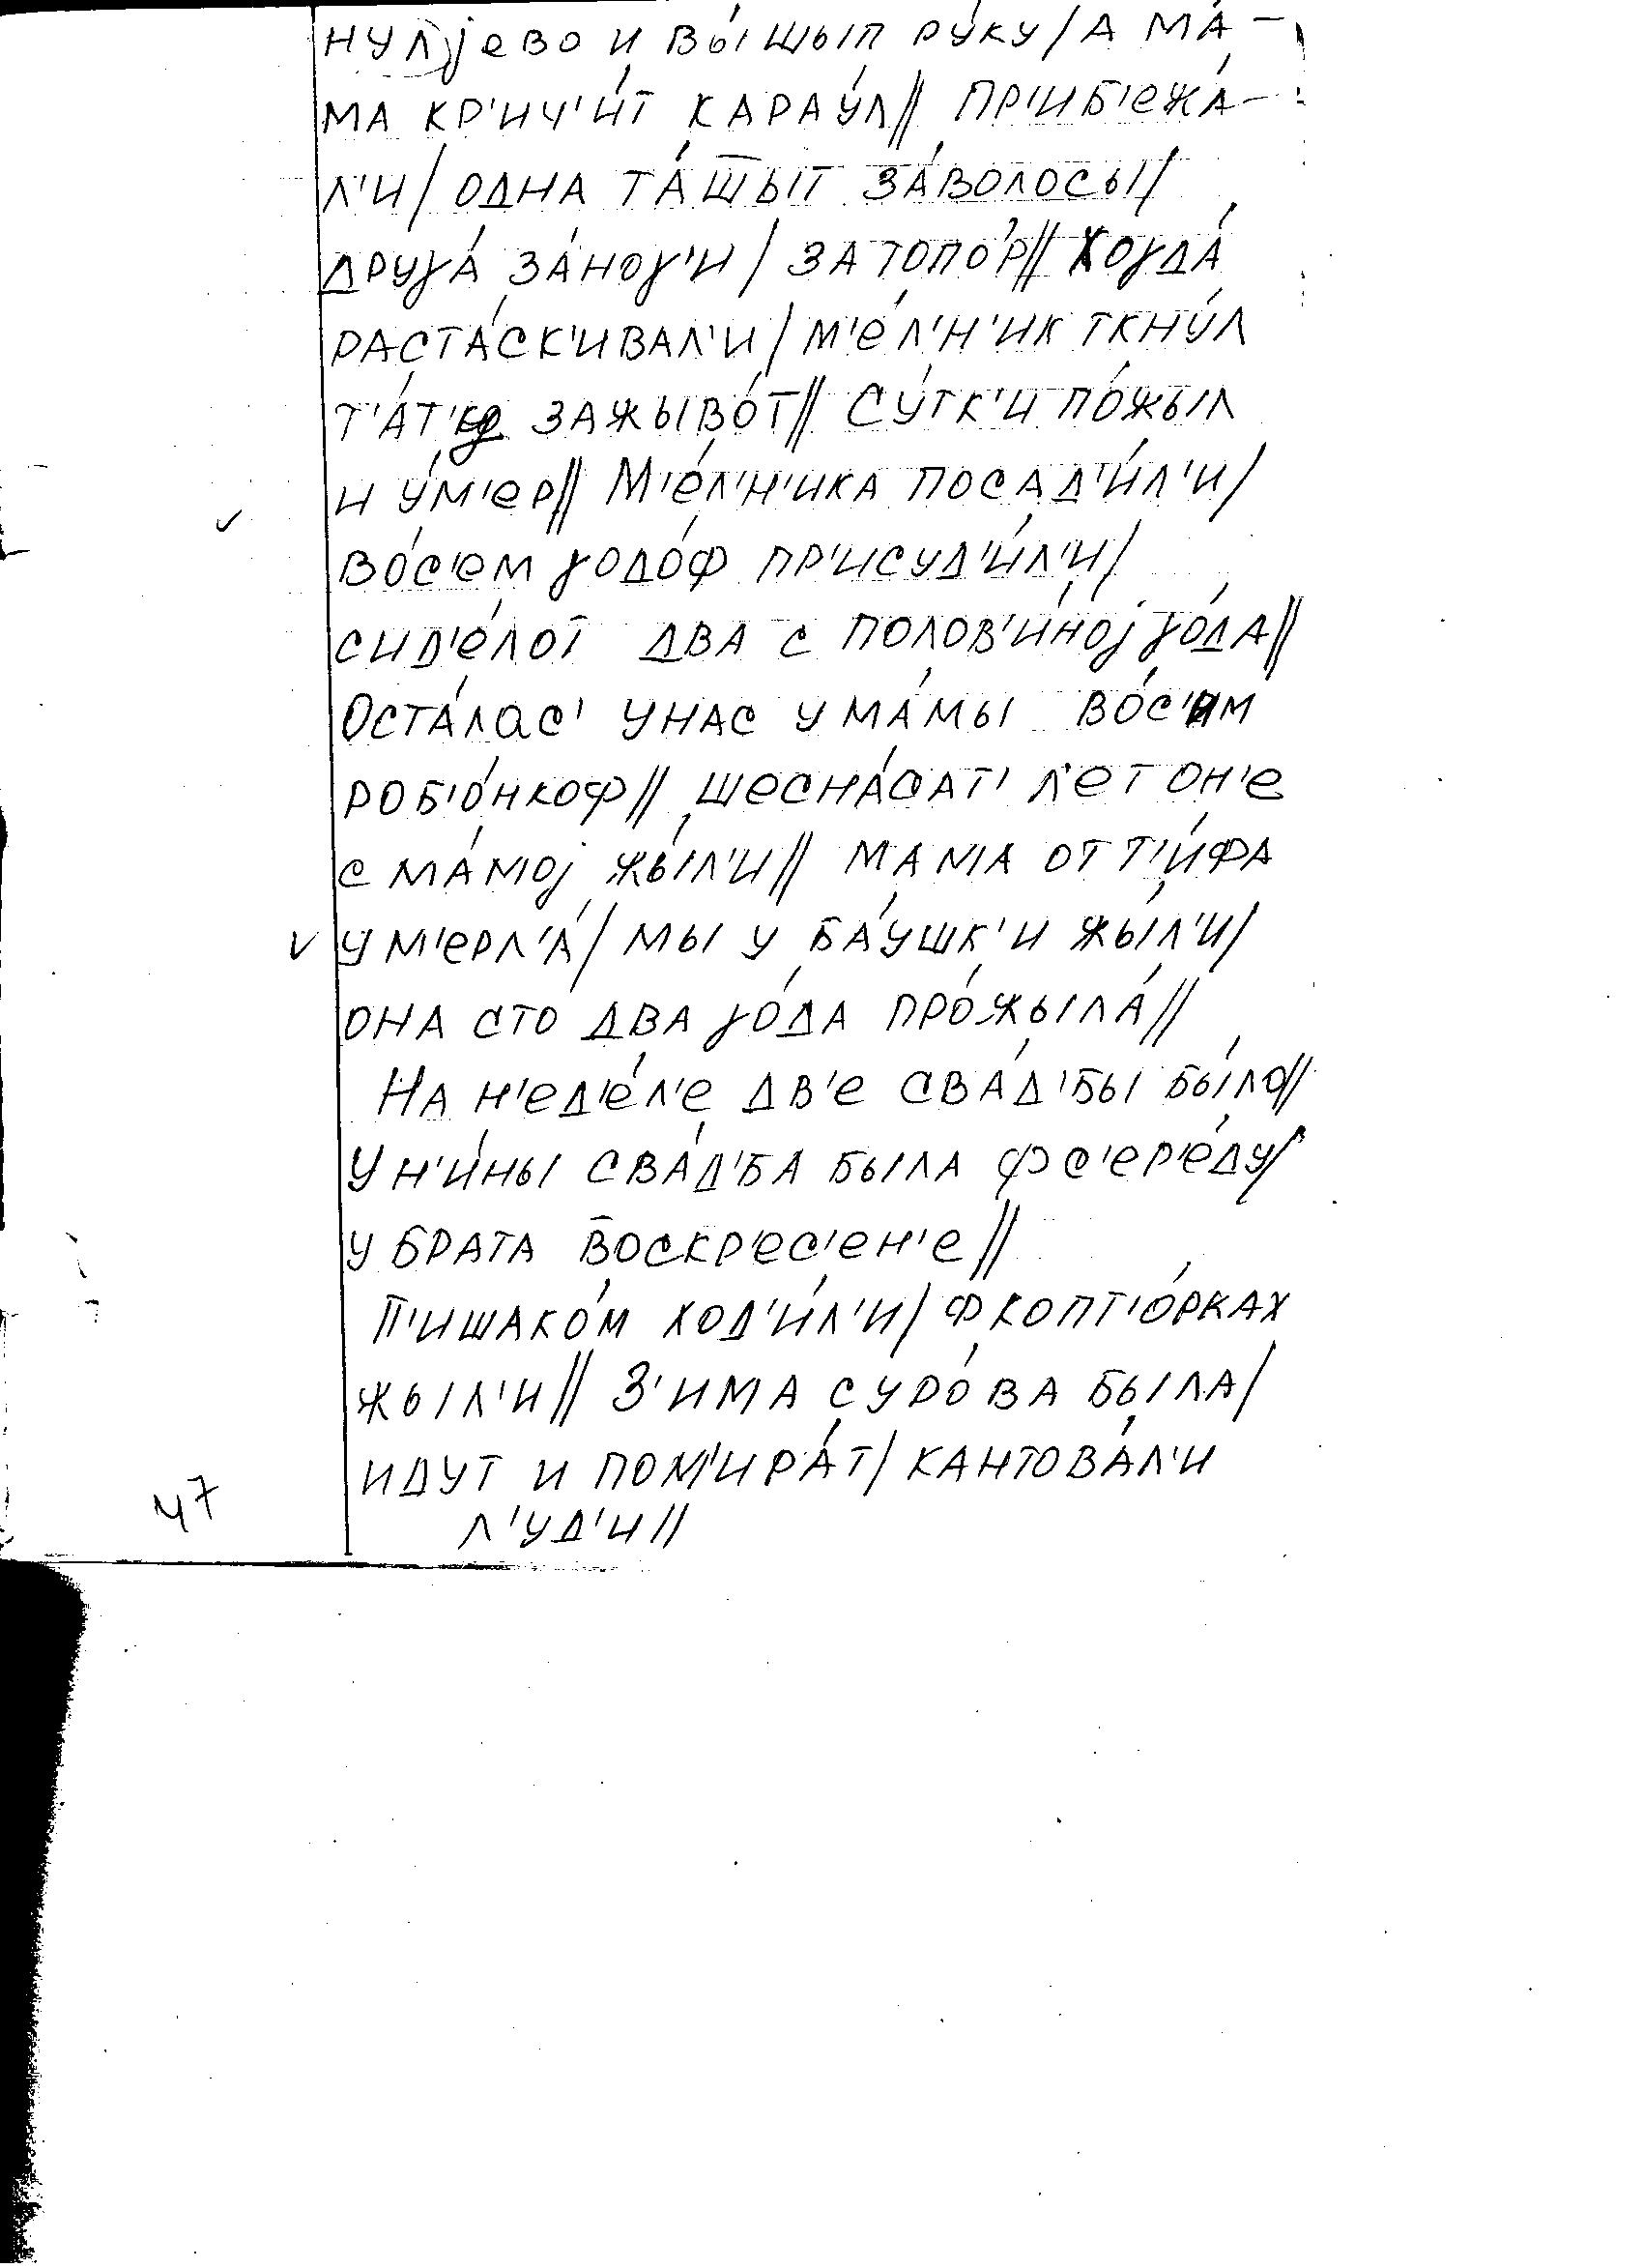 нулjево и вы́шып ру́ку/ а ма́-
ма кр'ич'и́т карау́л// пр'иб'ежа́-
л'и/ одна та́ш̅ыт за́волосы/
друγа́ за́ноγ'и/ за топо́р// Коγда́
раста́ск'ивал'и/ м'е́л'н'ик ткну́л
т'а́т'ку зажыво́т// Су́тк'и по́жыл
и у́м'ер// М'е́л'н'ика посад'и́л'и/
во́с'ем γодо́ф пр'исуд'и́л'и/
сид'е́лот два с полов'и́ноj γо́да//
Оста́лас' унас у ма́мы во́с'им
роб'о́нкоф// шесна́сат' л'ет он'е
с ма́моj жы́л'и// мама от т'и́фа
ум'ерл'а́/ мы у ба́ушк'и жы́л'и/
она сто два γо́да про́жыла́//
На н'ед'е́л'е дв'е сва́д'бы бы́ло//
У н'и́ны сва́д'ба была ф с'ер'е́ду/
у брата в̅оскр'ес'ен'е//
П'ишако́м ход'и́л'и/ ф копт'о́рках
жыл'и// З'има суро́ва была/
идут и пом'ира́т/ кантова́л'и
л'уд'и//
47